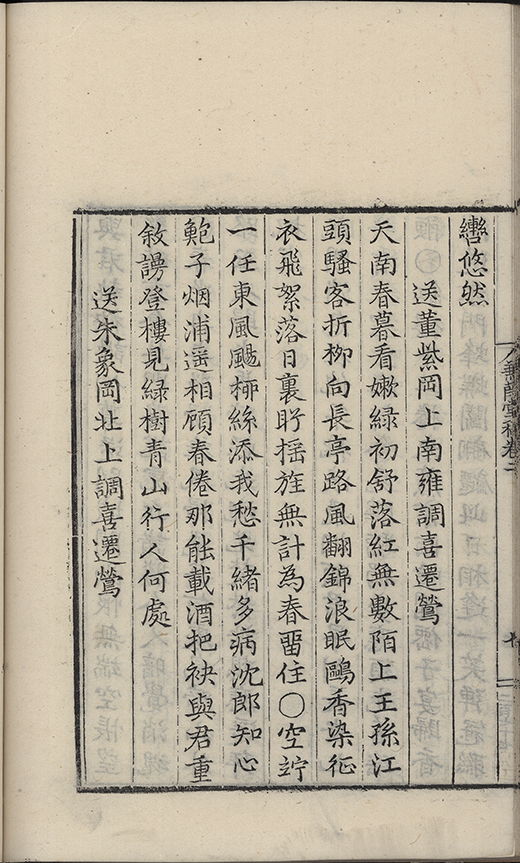 轡悠然
送董紫岡上南雍調喜遷鶯
天南春暮看嫩綠初舒落紅無數陌上王孫江
頭騷客折柳向長亭路風翻錦浪眠鷗香染征
衣飛絮落日裏盱搖旌無計為春畱住○空竚
一任東風颺柳絲添我愁千緒多病沈郎知心
鮑子烟浦遥相顧春倦那能載酒把袂與君重
敘謾登樓見綠樹青山行人何處
送朱象岡北上調喜遷鶯